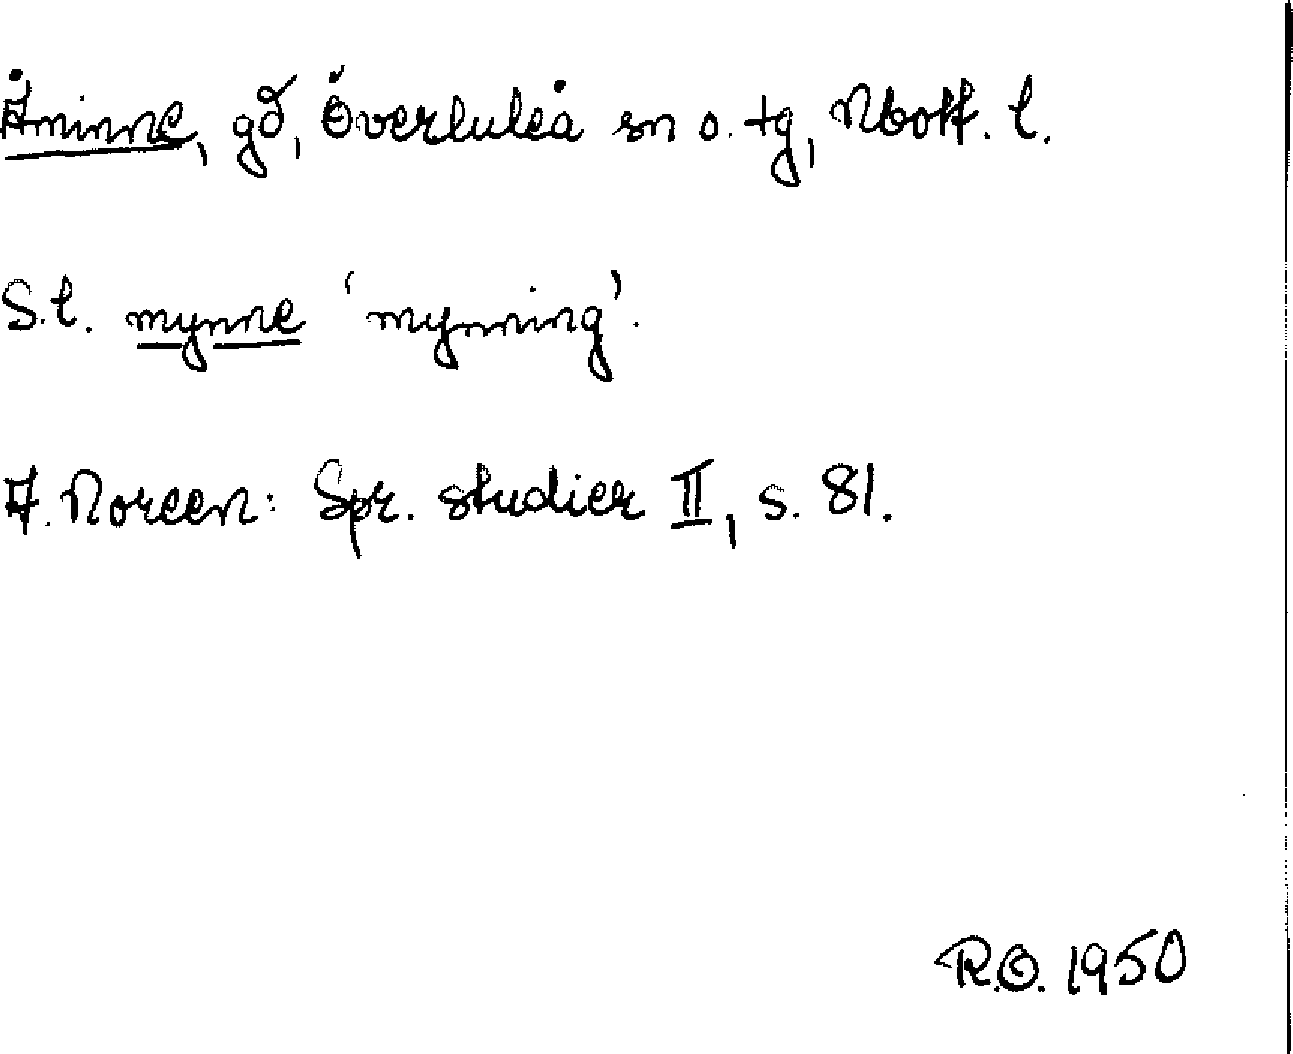 Åminne, gd, Överluleå sn o. tg, Nbott. l.
S.l. mynne 'mynning'.
A. Noreen: Spr. studier II, s. 81.
R.O. 1950